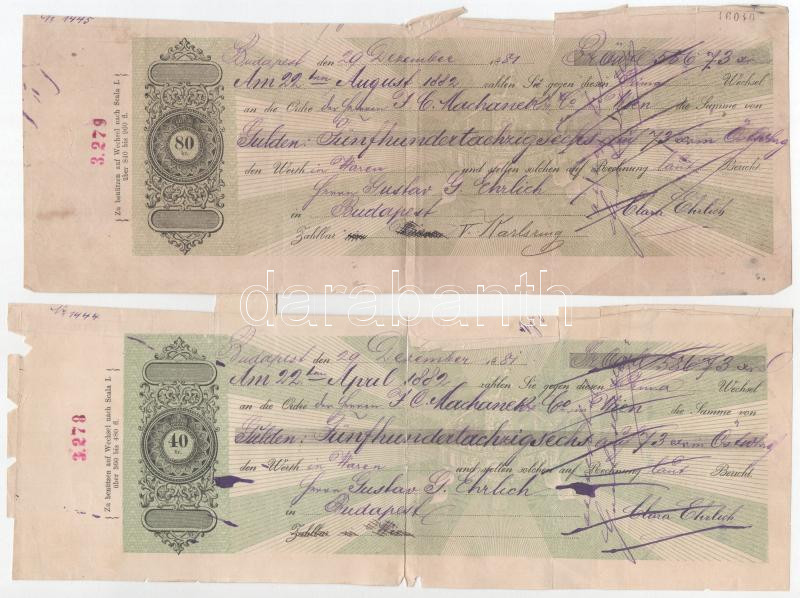 No 1445
16040
3.279
Zu benützen auf Wechsel nach Scala I.
über 840 bis 960 fl.
80
kr.
Budapest den 29 Dezember 1881 Pr öW fl 586 73 xr
Am 22ten August 1882 zahlen Sie gegen diesen Prima Wechsel
an die Ordre der Herren J. C. Machanek & Co in Wien die Summe von
Gulden: Fünfhundertachtzigsechs fl 73 xr in Öst Whg
den Werth in Waren und stellen solchen auf Rechnung laut Bericht
Herrn Gustav G. Ehrlich
in Budapest Clara Ehrlich
Zahlbar V. Karlsring
No 1444
3.278
Zu benützen auf Wechsel nach Scala I.
über 360 bis 480 fl.
40
kr.
Budapest den 29 Dezember 1881 Pr öW fl 586 73 xr
Am 22ten April 1882 zahlen Sie gegen diesen Prima Wechsel
an die Ordre der Herren J. C. Machanek & Co in Wien die Summe von
Gulden: Fünfhundertachtzigsechs fl 73 xr in Öst Whg
den Werth in Waren und stellen solchen auf Rechnung laut Bericht.
Herrn Gustav G. Ehrlich
in Budapest Clara Ehrlich
Zahlbar in Wien
darabanth